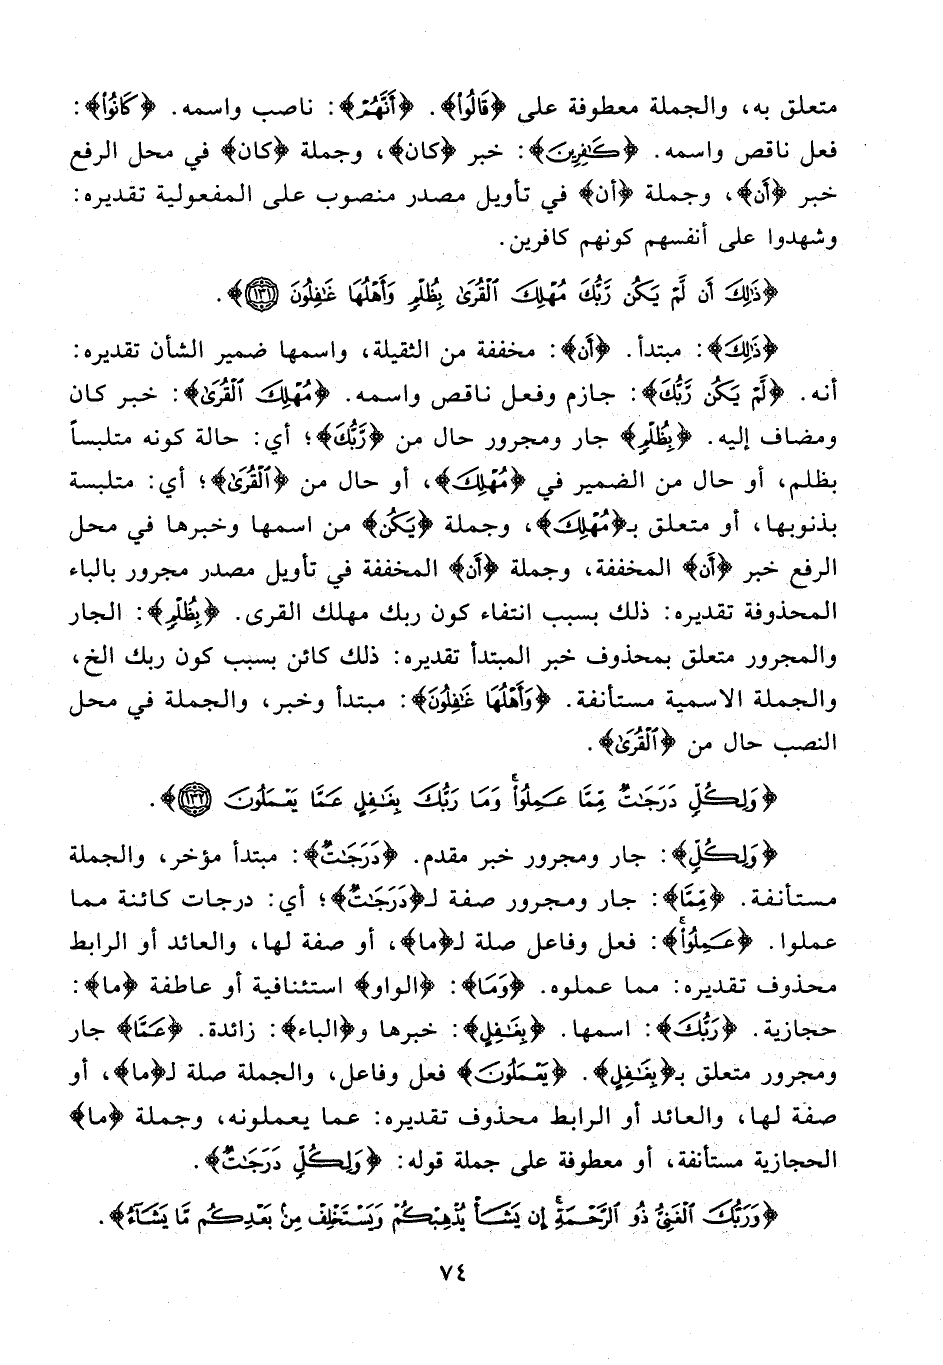 متعلق به، والجملة معطوفة على ﴿قَالُواْ﴾. ﴿أَنَّهُمْ﴾: ناصب واسمه. ﴿كَانُواْ﴾:
فعل ناقص واسمه. ﴿كَٰفِرِينَ﴾: خبر ﴿كان﴾، وجملة ﴿كان﴾ في محل الرفع
خبر ﴿أَن﴾، وجملة ﴿أن﴾ في تأويل مصدر منصوب على المفعولية تقديره:
وشهدوا على أنفسهم كونهم كافرين.
﴿ذَٰلِكَ أَن لَّمْ يَكُن رَّبُّكَ مُهْلِكَ ٱلْقُرَىٰ بِظُلْمٍ وَأَهْلُهَا غَٰفِلُونَ ۝١٣١﴾.
﴿ذَٰلِكَ﴾: مبتدأ. ﴿أَن﴾: مخففة من الثقيلة، واسمها ضمير الشأن تقديره:
أنه. ﴿لَّمْ يَكُن رَّبُّكَ﴾: جازم وفعل ناقص واسمه. ﴿مُهْلِكَ ٱلْقُرَىٰ﴾: خبر كان
ومضاف إليه. ﴿بِظُلْمٍ﴾ جار ومجرور حال من ﴿رَّبُّكَ﴾؛ أي: حالة كونه متلبساً
بظلم، أو حال من الضمير في ﴿مُهْلِكَ﴾، أو حال من ﴿ٱلْقُرَىٰ﴾؛ أي: متلبسة
بذنوبها، أو متعلق بـ﴿مُهْلِكَ﴾، وجملة ﴿يَكُن﴾ من اسمها وخبرها في محل
الرفع خبر ﴿أَن﴾ المخففة، وجملة ﴿أَن﴾ المخففة في تأويل مصدر مجرور بالباء
المحذوفة تقديره: ذلك بسبب انتفاء كون ربك مهلك القرى. ﴿بِظُلْمٍ﴾: الجار
والمجرور متعلق بمحذوف خبر المبتدأ تقديره: ذلك كائن بسبب كون ربك الخ،
والجملة الاسمية مستأنفة. ﴿وَأَهْلُهَا غَٰفِلُونَ﴾: مبتدأ وخبر، والجملة في محل
النصب حال من ﴿ٱلْقُرَىٰ﴾.
﴿وَلِكُلٍّ دَرَجَٰتٌ مِّمَّا عَمِلُواْ ۚ وَمَا رَبُّكَ بِغَٰفِلٍ عَمَّا يَعْمَلُونَ ۝١٣٢﴾.
﴿وَلِكُلٍّ﴾: جار ومجرور خبر مقدم. ﴿دَرَجَٰتٌ﴾: مبتدأ مؤخر، والجملة
مستأنفة. ﴿مِّمَّا﴾: جار ومجرور صفة لـ﴿دَرَجَٰتٌ﴾؛ أي: درجات كائنة مما
عملوا. ﴿عَمِلُواْ ۚ﴾: فعل وفاعل صلة لـ﴿ما﴾، أو صفة لها، والعائد أو الرابط
محذوف تقديره: مما عملوه. ﴿وَمَا﴾: ﴿الواو﴾ استئنافية أو عاطفة ﴿ما﴾:
حجازية. ﴿رَبُّكَ﴾: اسمها. ﴿بِغَٰفِلٍ﴾: خبرها و﴿الباء﴾: زائدة. ﴿عَمَّا﴾ جار
ومجرور متعلق بـ﴿بِغَٰفِلٍ﴾. ﴿يَعْمَلُونَ﴾ فعل وفاعل، والجملة صلة لـ﴿ما﴾، أو
صفة لها، والعائد أو الرابط محذوف تقديره: عما يعملونه، وجملة ﴿ما﴾
الحجازية مستأنفة، أو معطوفة على جملة قوله: ﴿وَلِكُلٍّ دَرَجَٰتٌ﴾.
﴿وَرَبُّكَ ٱلْغَنِىُّ ذُو ٱلرَّحْمَةِ ۚ إِن يَشَأْ يُذْهِبْكُمْ وَيَسْتَخْلِفْ مِنۢ بَعْدِكُم مَّا يَشَآءُ﴾.
٧٤